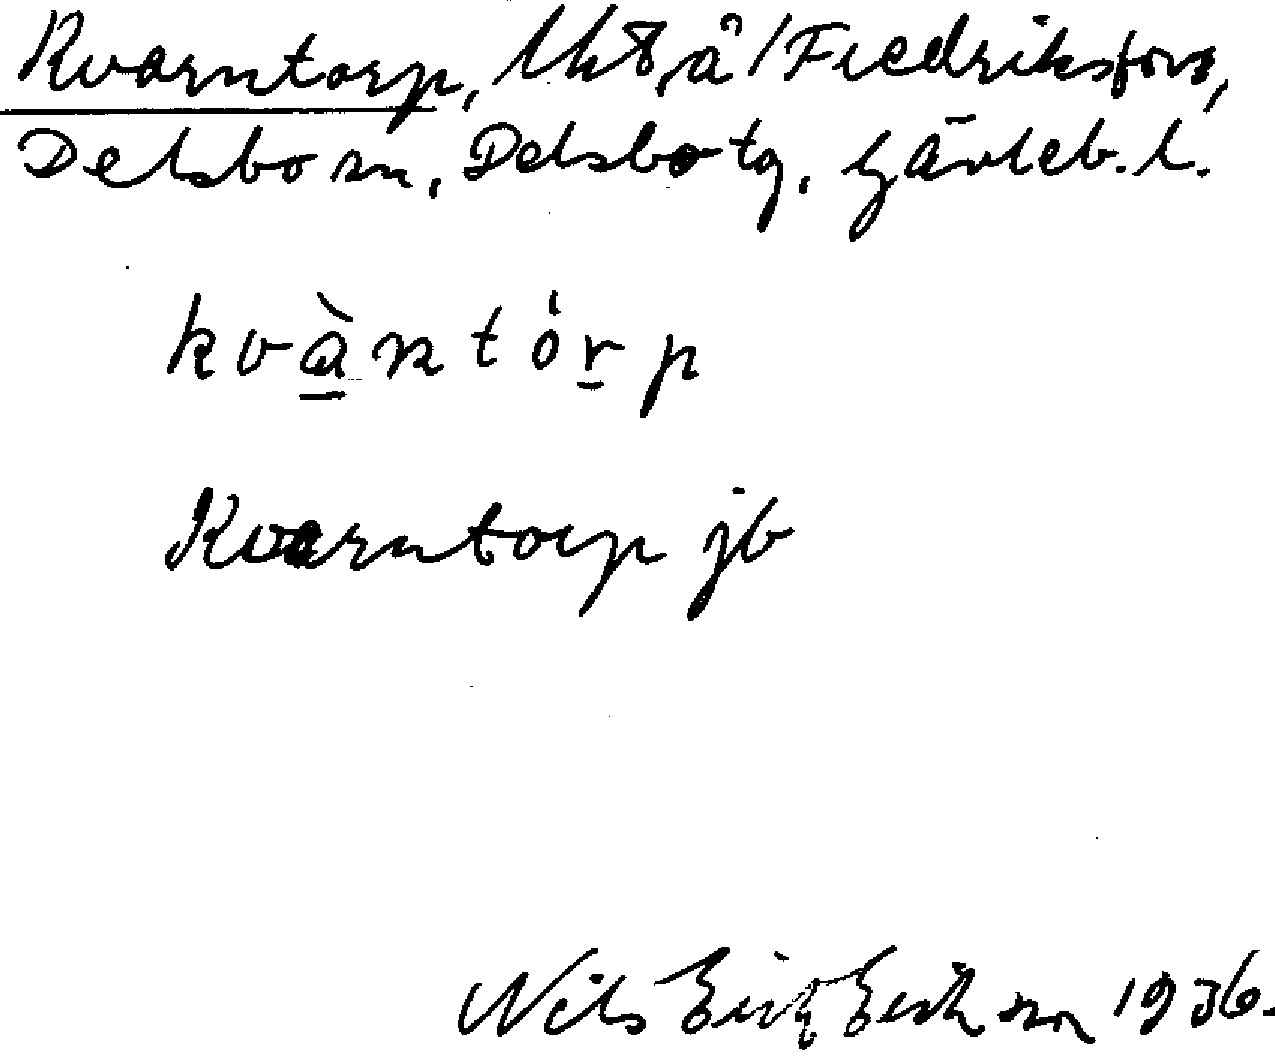 Kvarntorp, lht 8, å /Fredriksfors,
Delsbo sn, Delsbo tg, Gävleb. l.
kvàntórp
Kvarntorp jb
Nils Erik Eriksson 1936.